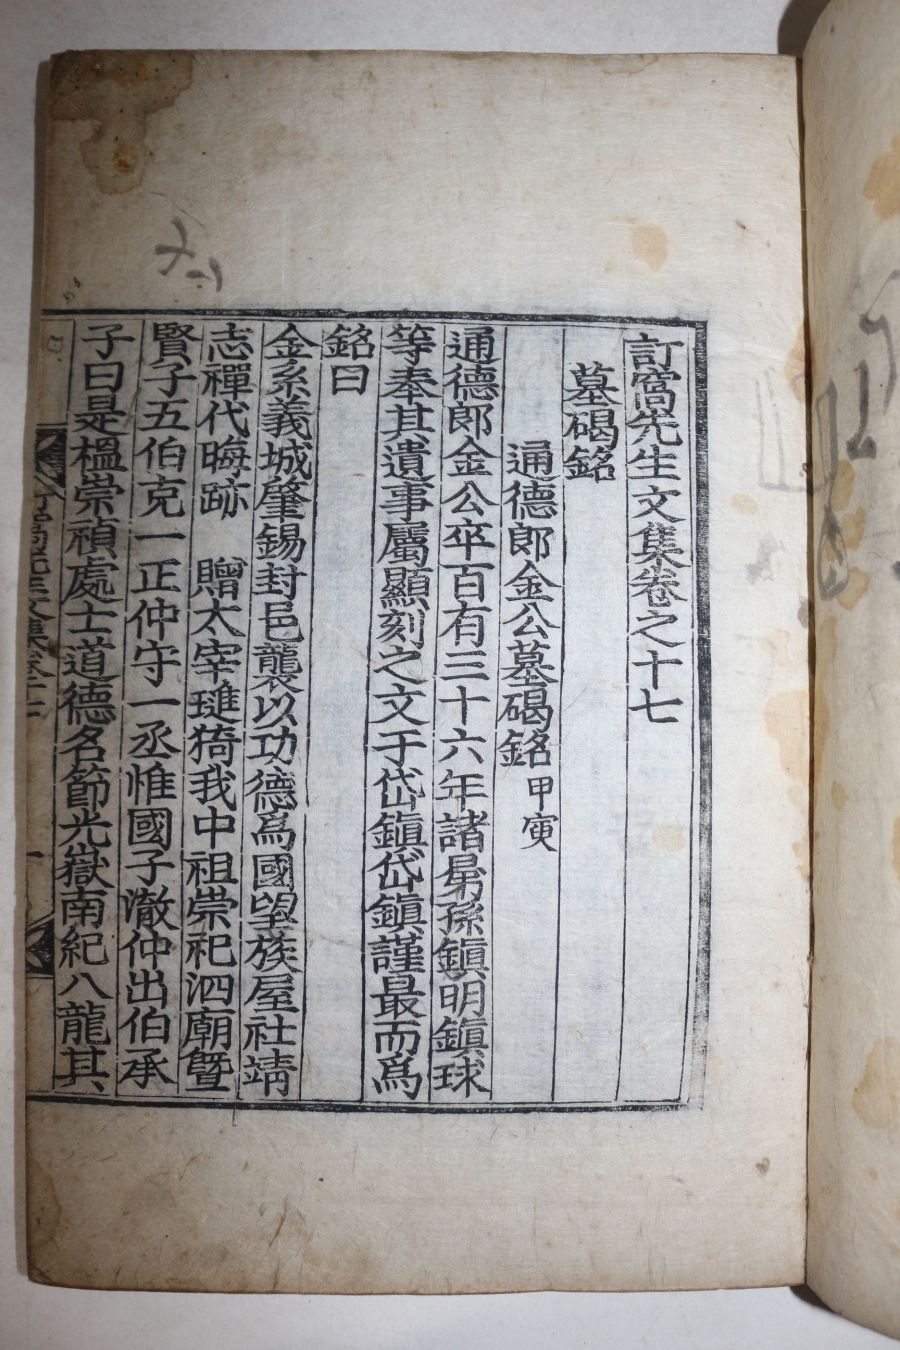 訂窩先生文集卷之十七
墓碣銘
通德郎金公墓碣銘 甲寅
通德郎金公卒百有三十六年諸昴孫鎭明鎭球
等奉其遺事屬顯刻之文于岱鎭岱鎭謹最而爲
銘曰
金系義城肇錫封邑襲以功德爲國望族屋社靖
志禪代晦跡 贈太宰璡猗我中祖崇祀泗廟曁
賢子五伯克一正仲守一丞惟國子澈仲出伯承
子曰是榲崇禎處士道德名節光嶽南紀八龍其